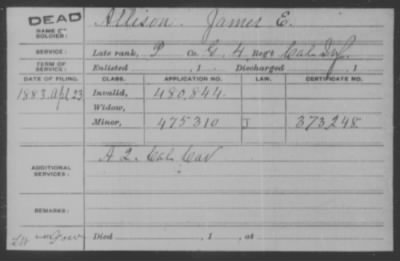 DEAD
NAME OF SOLDIER: Allison James E.
SERVICE: Late rank, P Co. G, 4 Reg't Cal. Inf.
TERM OF SERVICE: Enlisted , 1 Discharged , 1
DATE OF FILING. CLASS. APPLICATION NO. LAW. CERTIFICATE NO.
1883. Apl 23 Invalid, 480,844.
Widow,
Minor, 475310 J 373248
ADDITIONAL SERVICES: A 2. Cal. Cav
REMARKS:
Died , 1 , at